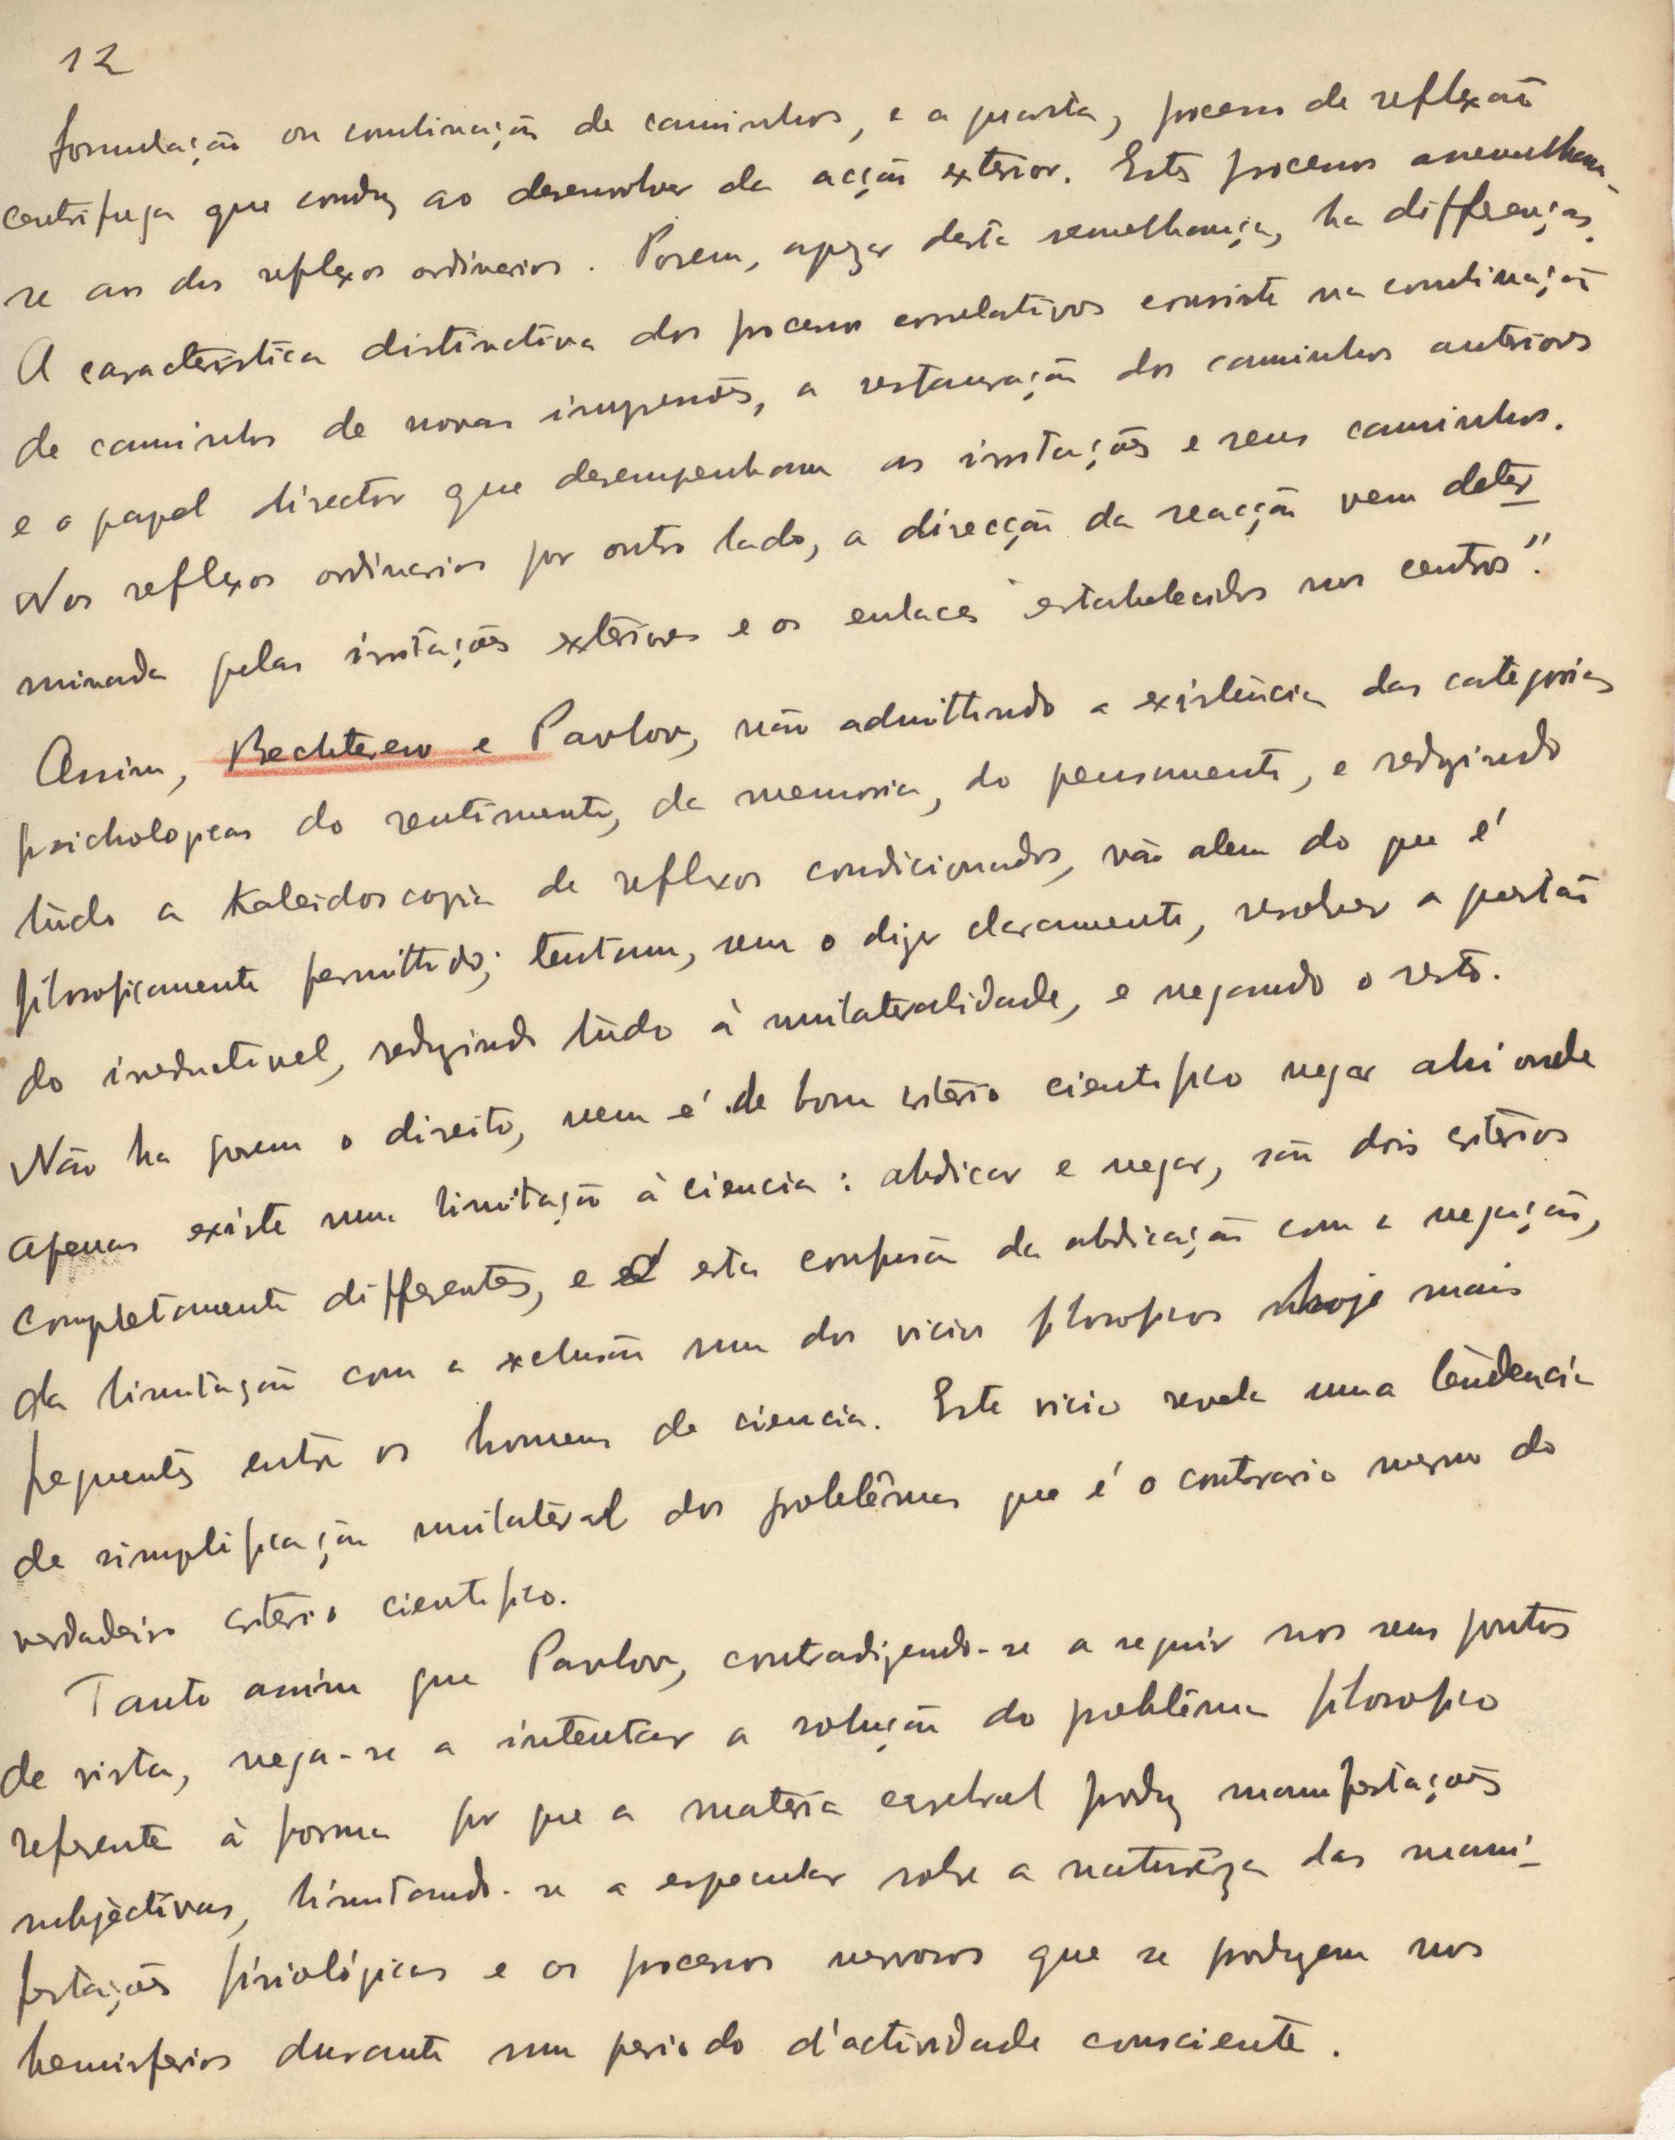 12
formulação ou combinação de caminhos, e a quarta, processo de reflexão
centrifuga que conduz ao desenvolver da acção exterior. Estes processos assemelham-
se aos dos reflexos ordinarios. Porem, apezar desta semelhança, ha differenças.
A caracteristica distinctiva dos processos correlativos consiste na combinação
de caminhos de novas impressões, a restauração dos caminhos anteriores
e o papel director que desempenham as irritações e seus caminhos.
Nos reflexos ordinarios por outro lado, a direcção da reacção vem deter
minada pelas irritações exteriores e os enlaces estabelecidos nos centros".
Assim, Bechterew e Pavlov, não admittindo a existência das categorias
psichologicas do sentimento, da memoria, do pensamento, e reduzindo
tudo a Kaleidoscopia de reflexos condicionados, vão alem do que é
filosoficamente permittido; tentam, sem o dizer claramente, resolver a questão
do ireductivel, reduzindo tudo à unilateralidade, e negando o resto.
Não ha porem o direito, nem é de bom critério cientifico negar ahi onde
apenas existe uma limitação à ciencia: abdicar e negar, são dois critérios
completamente differentes, e é esta confusão da abdicação com a negação,
da limitação com a exclusão um dos vicios filosoficos hoje mais
frequentes entre os homens de ciencia. Este vicio revela uma tendencia
de simplificação unilateral dos problêmas que é o contrario mesmo do
verdadeiro critério cientifico.
Tanto assim que Pavlov, contradizendo-se a seguir nos seus pontos
de vista, nega-se a intentar a solução do problêma filosofico
referente à forma por que a matéria cerebral produz manifestações
subjectivas, limitando-se a especular sobre a naturêza das mani-
festações fisiológicas e os processos nervosos que se produzem nos
hemisferios durante um periodo d'actividade consciente.